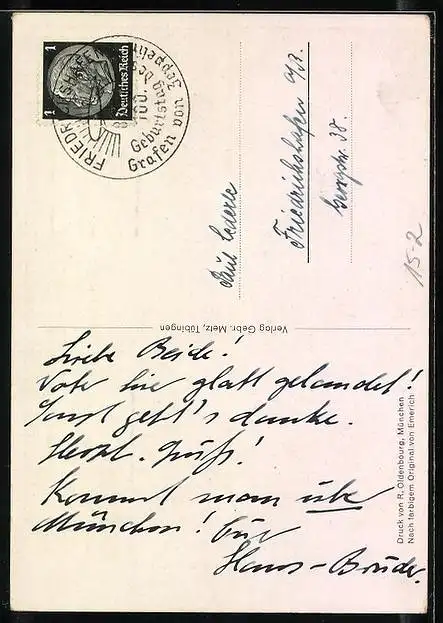 1
1
Deutsches Reich
FRIEDRICHSHAFEN
100.
Geburtstag des
Grafen von Zeppelin
Paul Lederle
Friedrichshafen a/B.
38.
15-2
Verlag Gebr. Metz, Tübingen
Liebe Beide!
hie glatt gelandet!
Sonst geht's danke.
Herzl. Grüße!
Kommt man übe
München! Eue
Hans-Bruder.
Druck von R. Oldenbourg, München
Nach farbigem Original von Emerich